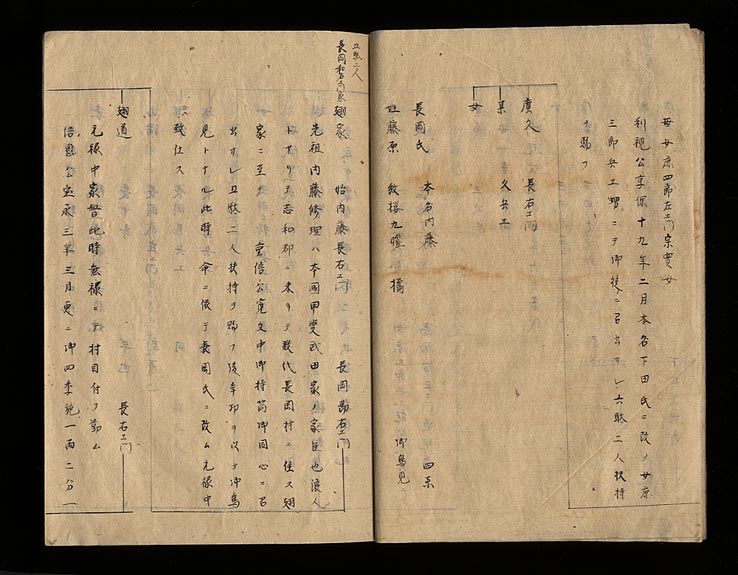 母安康四郎左エ門宗實女
利視公享保十九年二月本名下田氏ニ改メ安康
三郎兵エ嬶ニテ御徒ニ召出サレ六駄二人扶持
ヲ賜フ
廣久　長右エ門
某　久兵エ
女
長岡氏　本名内藤　四系
姓藤原　紋桜九曜　橘　御鳥見
五駄二人
長岡和多右エ門家
翅家　始内藤長右エ門　長岡勘右エ門
先祖内藤修理ハ本國甲斐武田家ノ家臣也浪人
トナリテ志和郡ニ来リテ数代長岡村ニ住ス翅
家ニ至テ重信公寛文中御持筒御同心ニ召
出サレ五駄二人扶持ヲ賜フ後辛卯ヲ以テ御鳥
見トナル此時命ニ依テ長岡氏ニ改ム元禄中
致仕ス
翅道　長右エ門
元禄中家督此時無禄ニテ村目付ヲ勤ム
信恩公宝永三年三月更ニ御四季施一両二分一